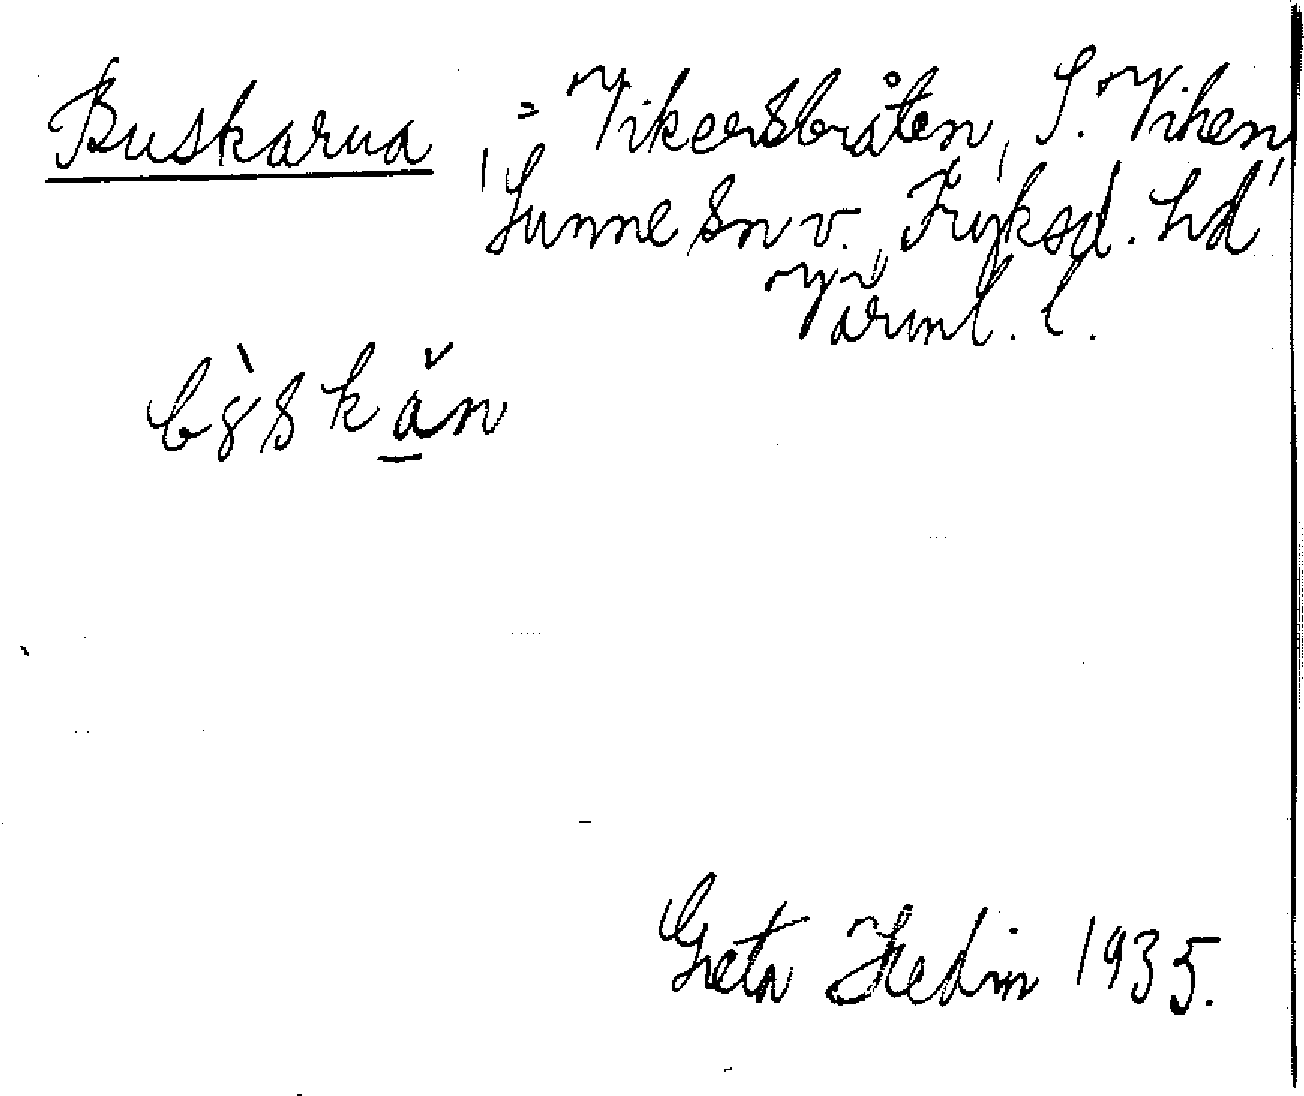 Buskarna = Vikersbråten, S. Viken,
Sunne sn v. Fryksd. hd
Värml. l.
Greta Hedin 1935.